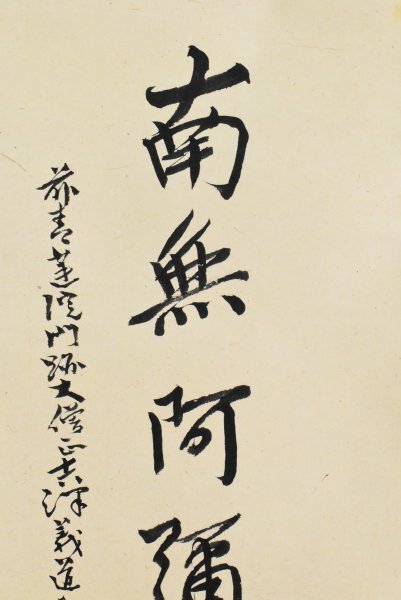 南無阿彌
前青蓮院門跡大僧正吉澤義道